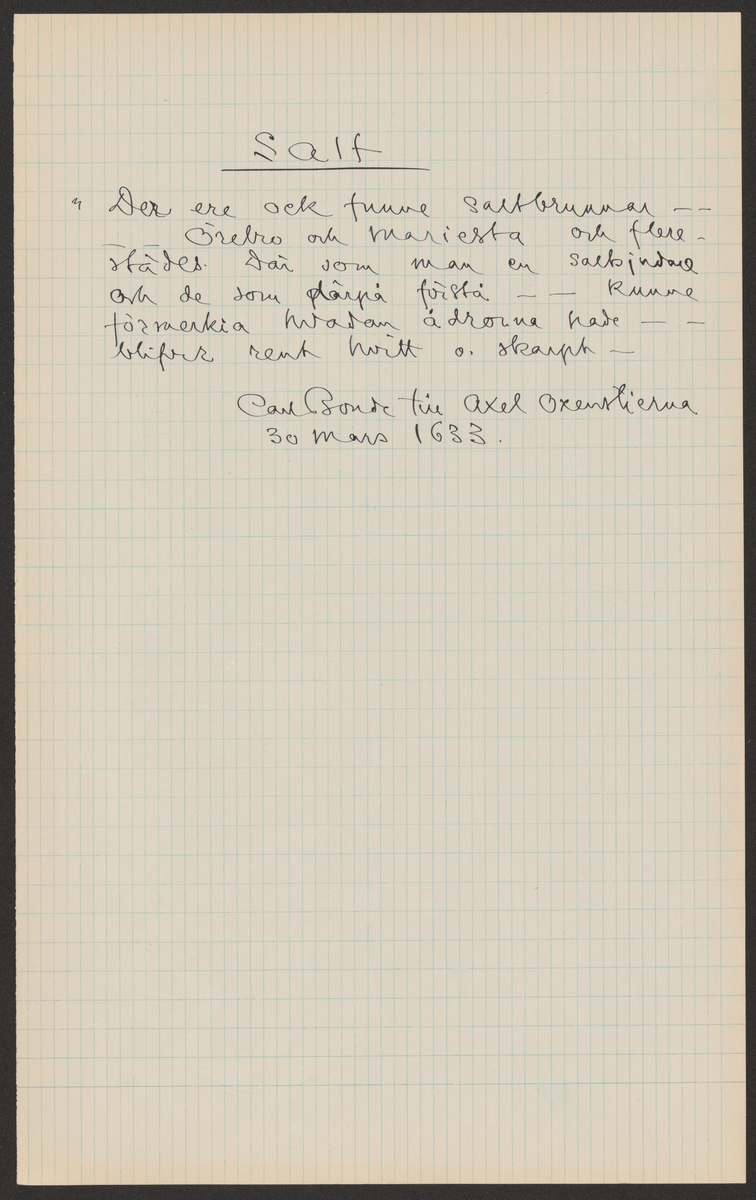 Salt
" Der ere ock funne saltbrunnar - -
- - Örebro och Mariesta och flere -
städes. Där som man en
och de som därpå förstå - - kunne
förmerkia hvadan ådrorna hade - -
blifver rent hvitt o. skarpt -
Carl Bonde till Axel Oxenstierna
30 mars 1633.